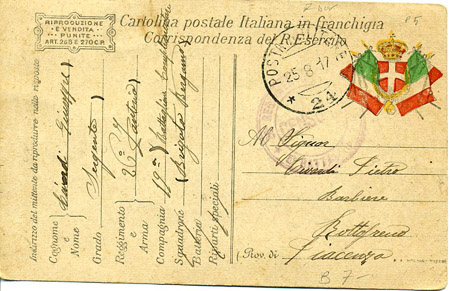 RIPRODUZIONE
E VENDITA
PUNITE
ART. 265 E 270 C.P.
Cartolina postale Italiana in franchigia
Corrispondenza del R. Esercito
POSTA
25.8.17
* 24
Indirizzo del mittente da riprodurre nelle risposte
Cognome
e
Nome
Giuseppe
Grado
Sergente
Reggimento
e
Arma
26° Fanteria
Compagnia
19ª Battaglione
Squadrone
Batteria
Riparti speciali
Al Signor
Pietro
Barbiere
Rottofreno
Prov. di Piacenza
B 7-